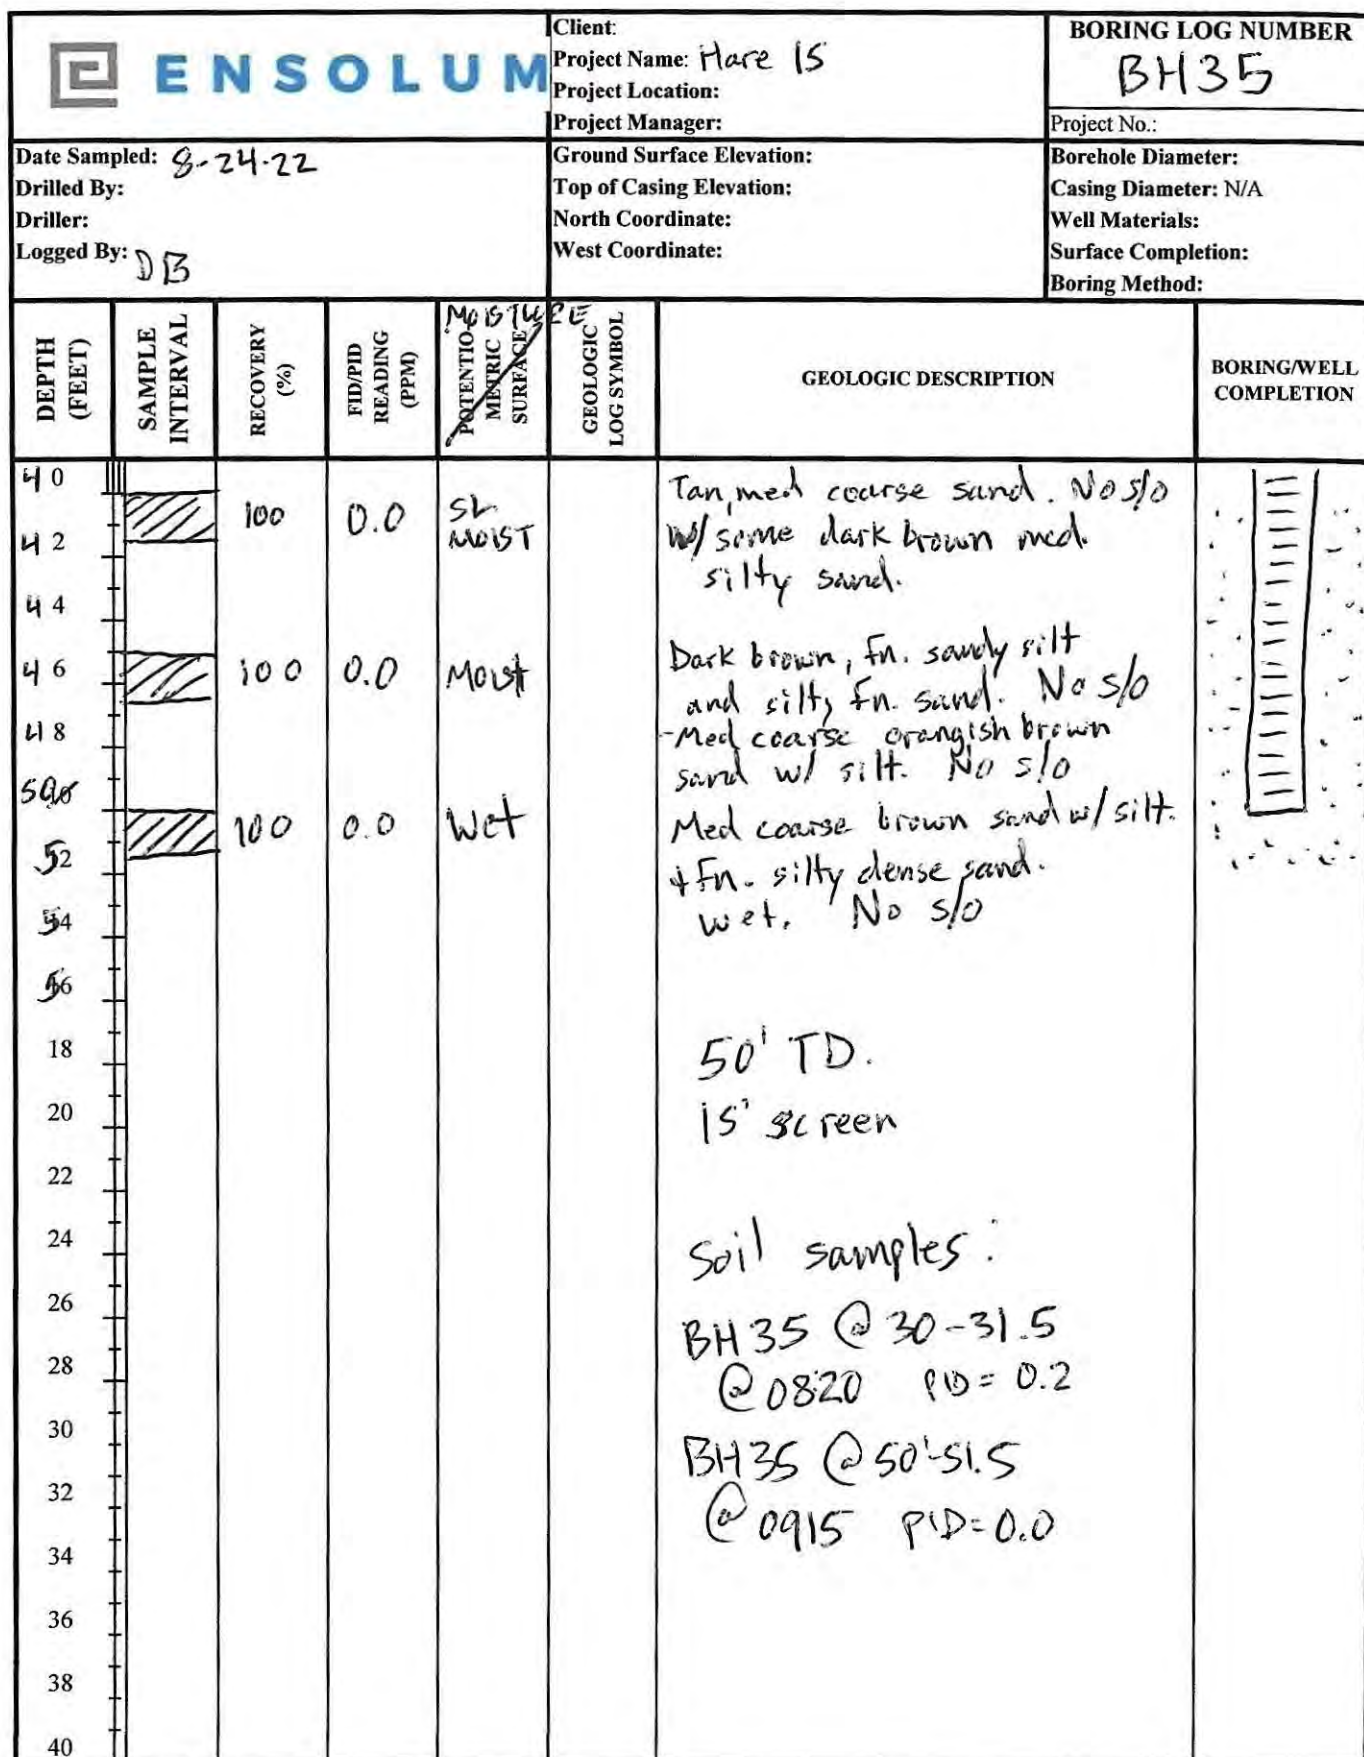 ENSOLUM
Client:
Project Name: Hare 15
Project Location:
Project Manager:
BORING LOG NUMBER
BH35
Project No.:
Date Sampled: 8-24-22
Drilled By:
Driller:
Logged By: DB
Ground Surface Elevation:
Top of Casing Elevation:
North Coordinate:
West Coordinate:
Borehole Diameter:
Casing Diameter: N/A
Well Materials:
Surface Completion:
Boring Method:
DEPTH
(FEET)
SAMPLE
INTERVAL
RECOVERY
(%)
FID/PID
READING
(PPM)
MOISTURE
POTENTIO-
METRIC
SURFACE
GEOLOGIC
LOG SYMBOL
GEOLOGIC DESCRIPTION
BORING/WELL
COMPLETION
40
100 0.0 SL
MOIST
Tan, med coarse sand. No s/o
w/ some dark brown med.
silty sand.
42
44
46 100 0.0 Moist
Dark brown, fn. sandy silt
and silty fn. sand. No s/o
-Med coarse orangish brown
sand w/ silt. No s/o
48
50
100 0.0 Wet
Med coarse brown sand w/ silt.
+ Fn. silty dense sand.
wet. No s/o
52
54
56
18
50' TD.
20
15' screen
22
24
Soil samples:
26
BH35 @ 30-31.5
28
@ 0820 PID= 0.2
30
BH35 @ 50'-51.5
32
@ 0915 PID=0.0
34
36
38
40